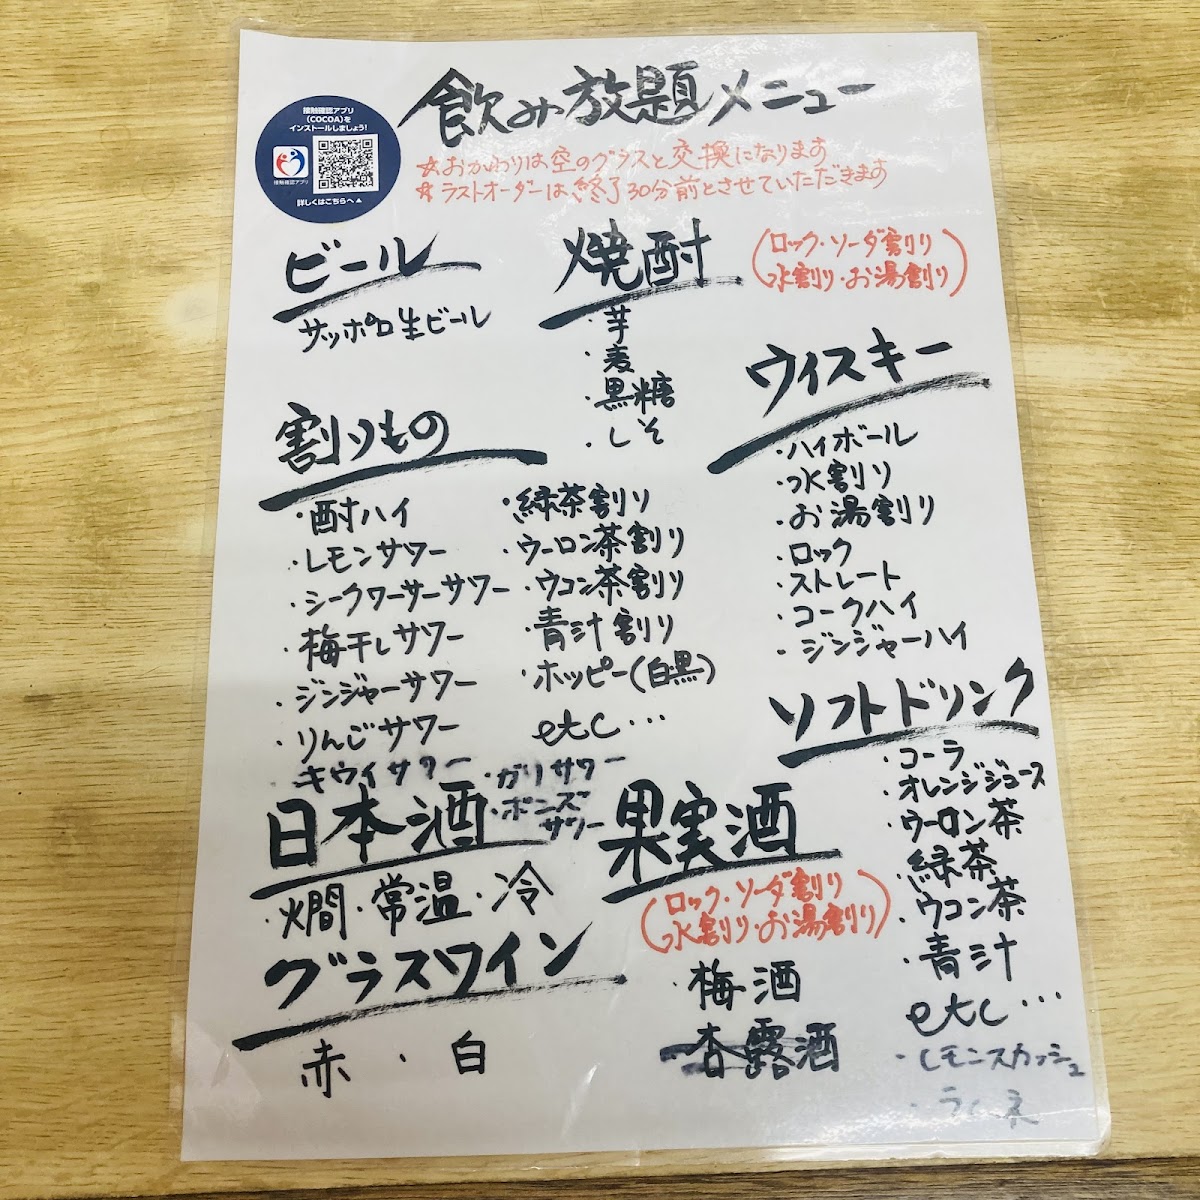 飲み放題メニュー
接触確認アプリ
(COCOA)を
インストールしましょう!
接触確認アプリ
詳しくはこちらへ▲
☆おかわりは空のグラスと交換になります
☆ラストオーダーは終了30分前とさせていただきます
ビール
サッポロ生ビール
焼酎
(ロック・ソーダ割り
水割り・お湯割り)
・芋
・麦
・黒糖
・しそ
ウィスキー
・ハイボール
・水割り
・お湯割り
・ロック
・ストレート
・コークハイ
・ジンジャーハイ
割りもの
・酎ハイ
・レモンサワー
・シークワーサーサワー
・梅干しサワー
・ジンジャーサワー
・りんごサワー
・キウイサワー
・緑茶割り
・ウーロン茶割り
・ウコン茶割り
・青汁割り
・ホッピー(白・黒)
etc…
・ガリサワー
・ポンズ
サワー
ソフトドリンク
・コーラ
・オレンジジュース
・ウーロン茶
・緑茶
・ウコン茶
・青汁
etc…
・レモンスカッシュ
・ラムネ
日本酒
・燗・常温・冷
果実酒
(ロック・ソーダ割り
水割り・お湯割り)
・梅酒
・杏露酒
グラスワイン
赤・白